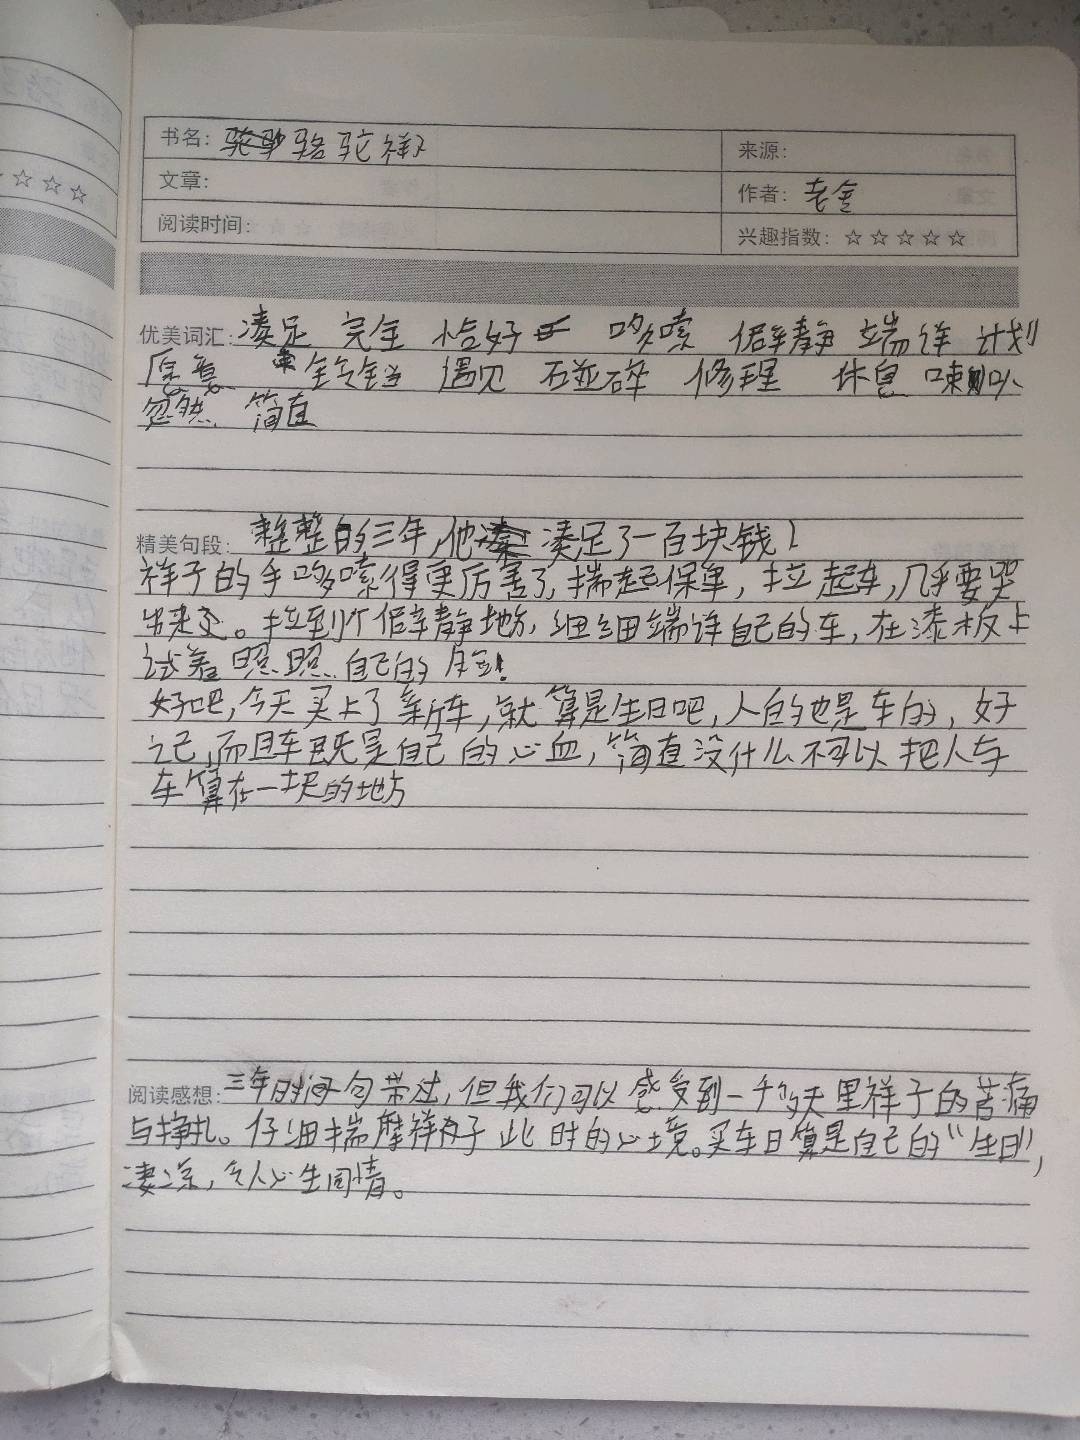 书名: 骆驼祥子
来源:
文章:
作者: 老舍
阅读时间:
兴趣指数: ☆☆☆☆☆
优美词汇: 凑足 完全 恰好 哆嗦 僻静 端详 计划
愿意 铃铛 遇见 碰碎 修理 休息 喇叭
忽然 简直
精美句段: 整整的三年,他凑足了一百块钱!
祥子的手哆嗦得更厉害了,揣起保单,拉起车,几乎要哭
出来。拉到个僻静地方,细细端详自己的车,在漆板上
试着照照自己的脸!
好吧,今天买上了新车,就算是生日吧,人的也是车的,好
记,而且车既是自己的心血,简直没什么不可以把人与
车算在一块的地方
阅读感想: 三年时间一句带过,但我们可以感受到一千多天里祥子的苦痛
与挣扎。仔细揣摩祥子此时的心境。买车日算是自己的“生日”,
凄凉,令人心生同情。